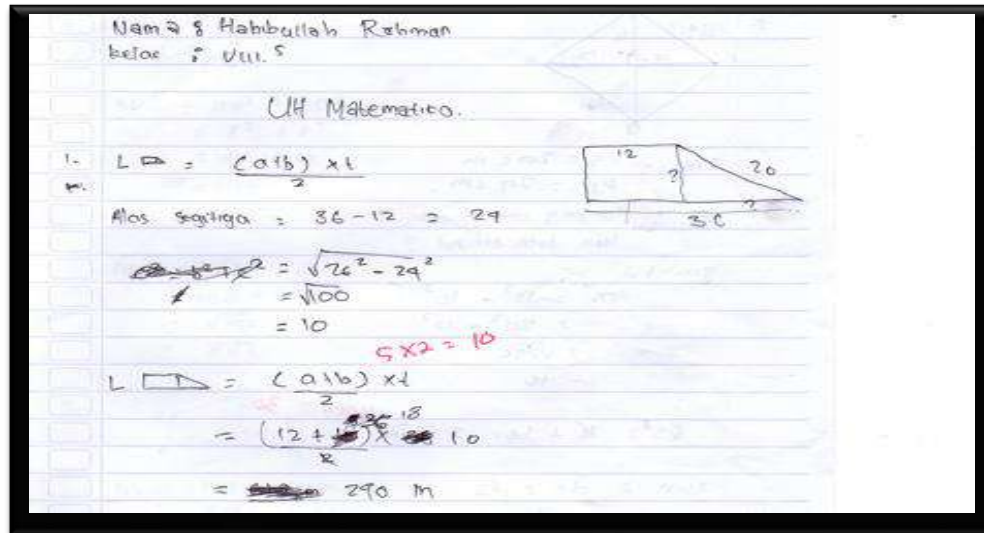 Nama : Habibullah Rahman
kelas : VIII.5
UH Matematika.
1. L = (a+b) x t
2
12
?
20
?
36
Alas segitiga = 36 - 12 = 24
= √26² - 24²
= √100
= 10
5 x 2 = 10
L = (a+b) x t
2
18
= (12 + ) x 10
2
= 240 m